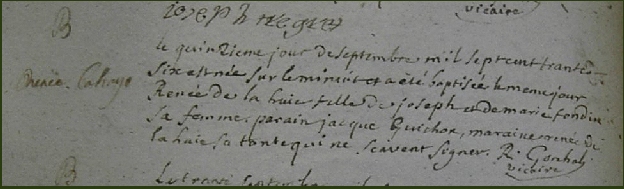 joseph negrie
vicaire
B
le quinzieme jour de septembre mil sept cent trante
Renée Lahaye six est née sur le minuit et a été baptisée le meme jour
Renée de la huie fille de joseph et de marie fondin
sa femme. parain jacque Guichon, maraine renée de
la huie sa tante qui ne scavent signer. R. Gonhay
vicaire
B